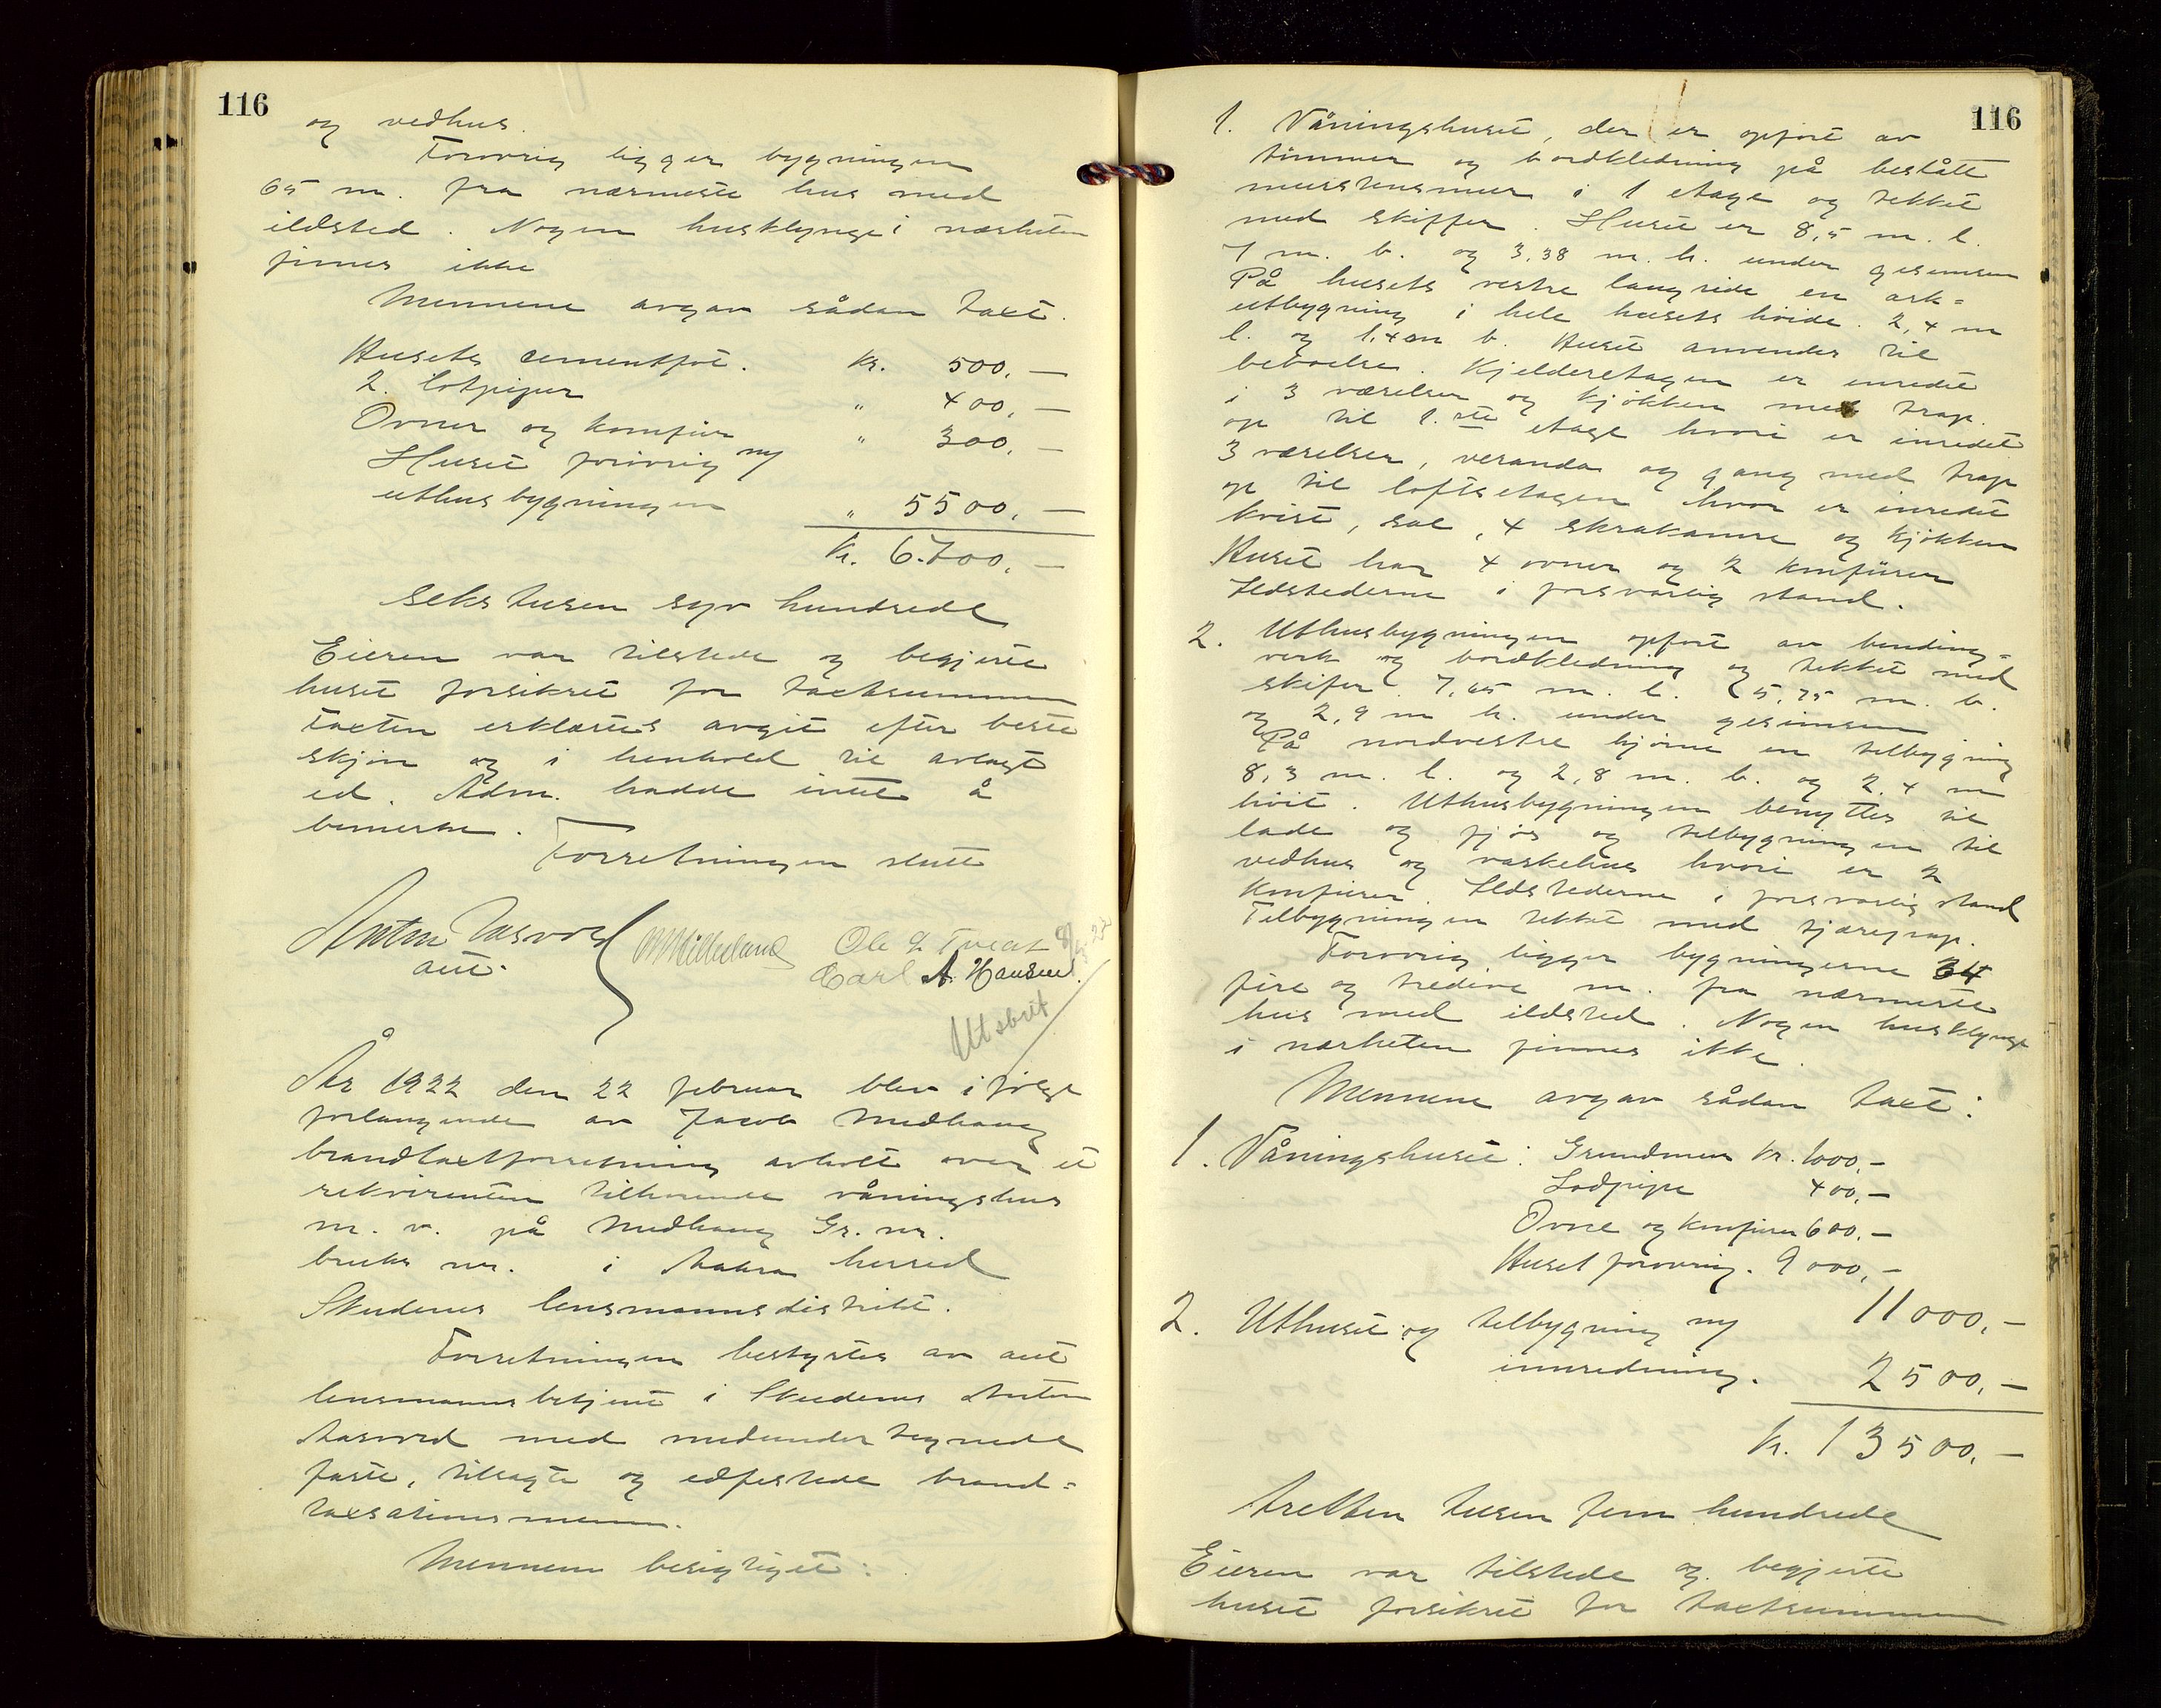 116
og vedhus.
Forøvrig ligger bygningen
65 m. fra nærmeste hus med
ildsted. Nogen husklynge i nærheten
finnes ikke
Mennene avgav sådan taxt.
Husets cementfot. Kr. 500,—
2 lotpiper " 400,—
Ovner og komfur " 300,—
Huset forøvrig og
uthusbygningen " 5500,—
Kr. 6.700,—
seks tusen syv hundrede
Eieren var tilstede og begjerte
huset forsikret for taxtsummen
Taxten erklærtes avgit efter beste
skjøn og i henhold til avlagt
ed. Adm. hadde intet å
bemerke.
Forretningen slutt
Anton Aasvold
aut.
Ole G. Tveit
Carl A. Hansen.
Utskrit
År 1922 den 22 februar blev ifølge
forlangende av Jacob Medhaug
brandtaxtforretning avholt over et
rekvirenten tilhørende våningshus
m. v. på Medhaug Gr. nr.
bruks nr. i Aakra herred
Skudenes lensmannsdistrikt.
Forretningen bestyrtes av aut
lensmannsbetjent i Skudenes Anton
Aasvold med medundertegnede
faste, tilsagte og edfestede brand=
taxsationsmenn.
Mennene besigtiget:
116
1. Våningshuset, der er opført av
tømmer og bordkledning på beslått
murstensmur i 1 etage og tekket
med skiffer. Huset er 8,5 m. l.
7 m. b. og 3,38 m. h. under gesimsen
På husets vestre langside en ark=
utbygning i hele husets høide. 2,4 m
l. og 1,4 m b. Huset anvendes til
beboelse. Kjelderetagen er inredet
i 3 værelser og kjøkken med trap.
op til 1.ste etage hvori er inredet
3 værelser, veranda og gang med trap
op til loftsetagen hvor er inredet
kvist, sal, 4 skrakamre og kjøkken
Huset har 4 ovner og 2 komfurer
Ildstederne i forsvarlig stand.
2. Uthusbygningen opført av binding=
verk og bordkledning og tekket med
skifer. 7,65 m. l. 5,75 m. b.
og 2,9 m h. under gesimsen
På nordvestre hjørne en tilbygning
8,3 m. l. og 2,8 m. b. og 2,4 m
høit. Uthusbygningen benyttes til
lade og fjøs og tilbygningen til
vedhus og vaskehus hvori er 2
komfurer. Ildstederne i forsvarlig stand
Tilbygningen tekket med tjærepap.
Forøvrig ligger bygningerne 34
fire og tredive m. fra nærmeste
hus med ildsted. Nogen husklynge
i nærheten finnes ikke.
Mennene avgav sådan taxt:
1. Våningshuset: Grundmur Kr. 1000,—
Lodpipe 400,—
Ovne og komfurer 600,—
Huset forøvrig. 9000,—
11000,—
2. Uthuset og tilbygning og
innredning. 2500,—
Kr. 13500,—
tretten tusen fem hundrede
Eieren var tilstede og begjerte
huset forsikret for taxtsummen